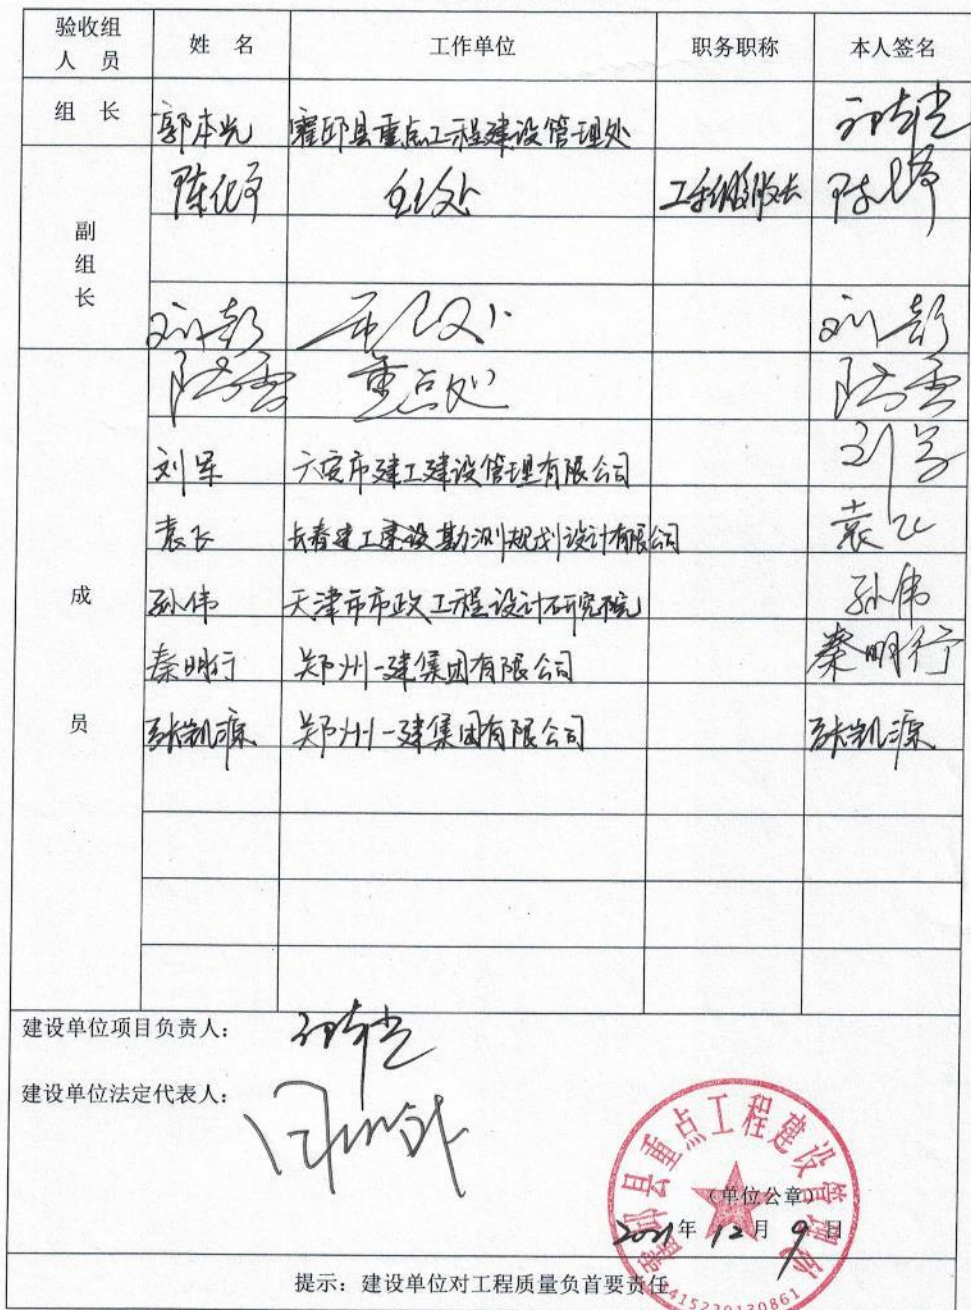 验收组人员 姓名 工作单位 职务职称 本人签名
组长 郭本光 霍邱县重点工程建设管理处 郭本光
副组长
刘彭 刘彭
重点处
成员
刘军 六安市建工建设管理有限公司 刘军
袁飞 长春建工建设勘测规划设计有限公司 袁飞
孙伟 天津市市政工程设计研究院 孙伟
秦明行 郑州一建集团有限公司 秦明行
张凯源 郑州一建集团有限公司 张凯源
建设单位项目负责人： 郭本光
建设单位法定代表人：
霍邱县重点工程建设管理处
（单位公章）
2021年12月9日
提示：建设单位对工程质量负首要责任
3415220130861